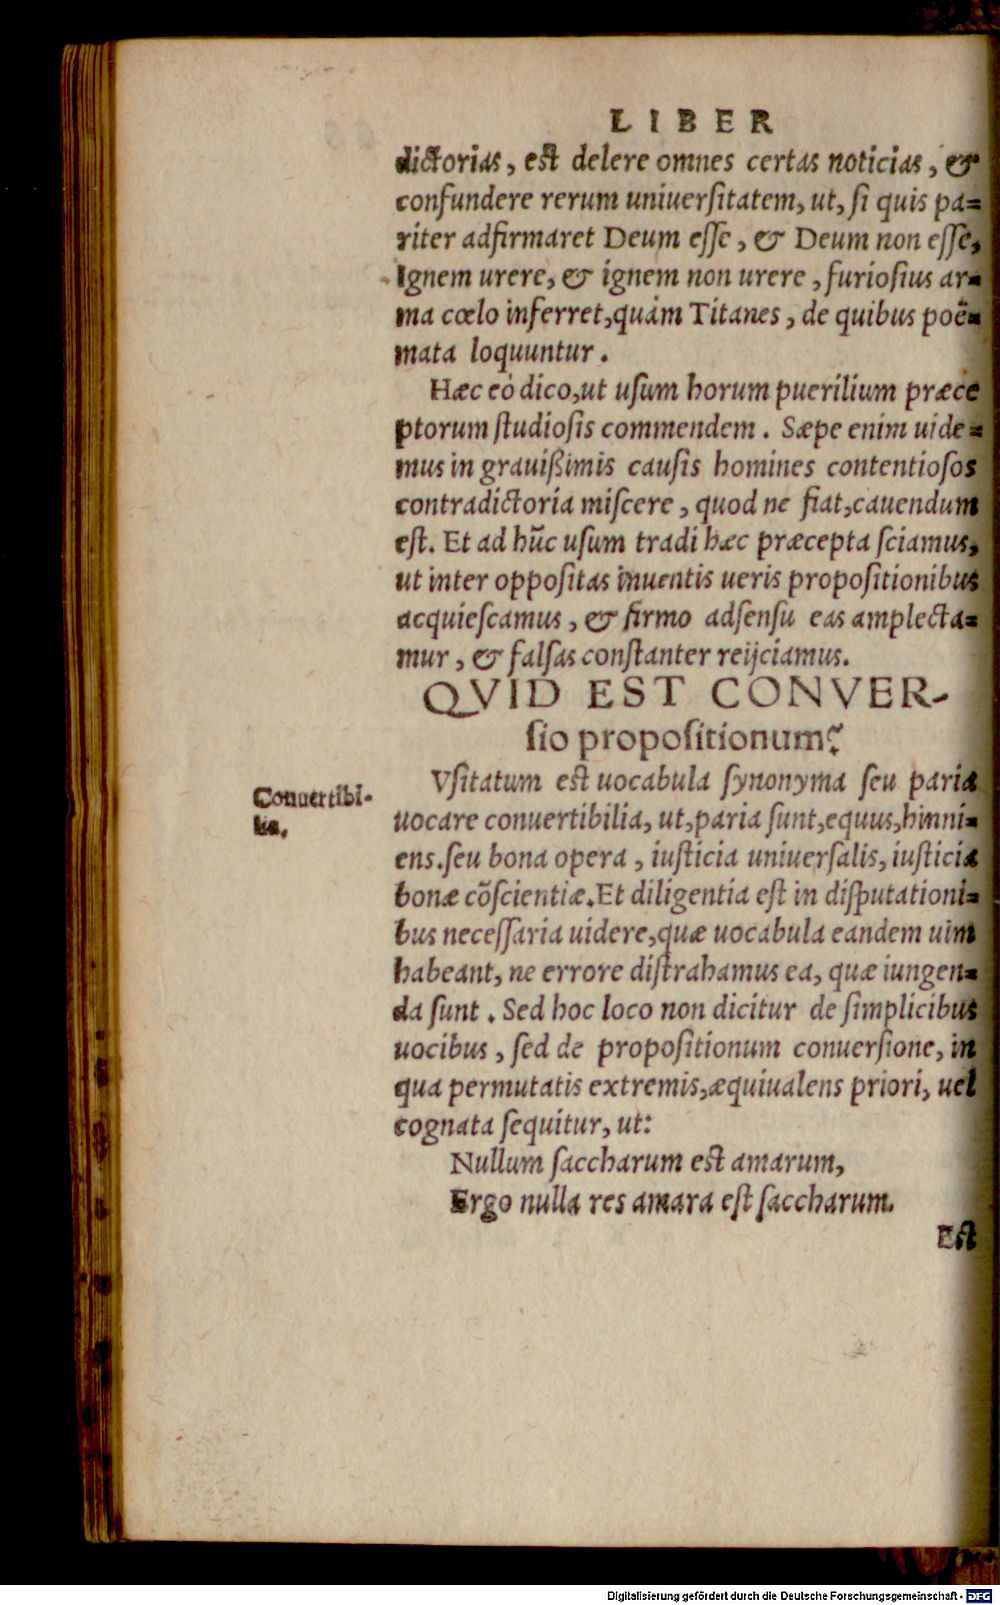 LIBER
dictorias, est delere omnes certas noticias, &
confundere rerum uniuersitatem, ut, si quis pa=
riter adfirmaret Deum esse, & Deum non esse,
Ignem urere, & ignem non urere, furiosius ar=
ma cœlo inferret, quàm Titanes, de quibus poë=
mata loquuntur.
Hæc eò dico, ut usum horum puerilium præce
ptorum studiosis commendem. Sæpe enim uide=
mus in grauißimis causis homines contentiosos
contradictoria miscere, quod ne fiat, cauendum
est. Et ad hũc usum tradi hæc præcepta sciamus,
ut inter oppositas inuentis ueris propositionibus
acquiescamus, & firmo adsensu eas amplecta=
mur, & falsas constanter reijciamus.
QVID EST CONVER-
sio propositionum?
Vsitatum est uocabula synonyma seu paria
Conuertibi-
lia.
uocare conuertibilia, ut, paria sunt, equus, hinni=
ens. seu bona opera, iusticia uniuersalis, iusticia
bonæ cõscientiæ. Et diligentia est in disputationi=
bus necessaria uidere, quæ uocabula eandem uim
habeant, ne errore distrahamus ea, quæ iungen=
da sunt. Sed hoc loco non dicitur de simplicibus
uocibus, sed de propositionum conuersione, in
qua permutatis extremis, æquiualens priori, uel
cognata sequitur, ut:
Nullum saccharum est amarum,
Ergo nulla res amara est saccharum.
Est
Digitalisierung gefördert durch die Deutsche Forschungsgemeinschaft - DFG